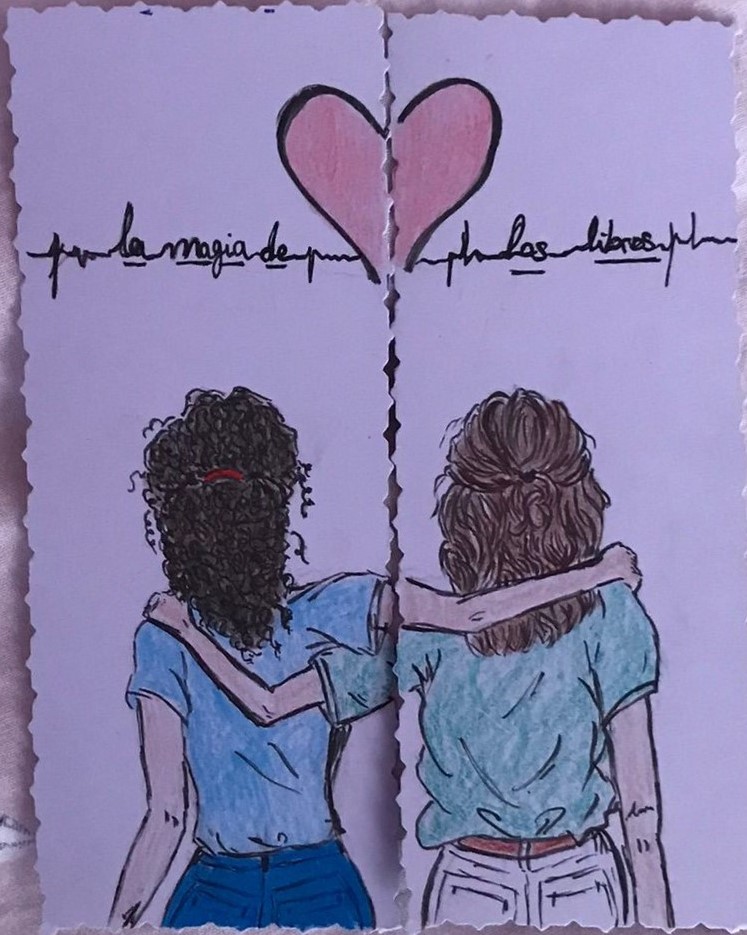 la magia de los libros